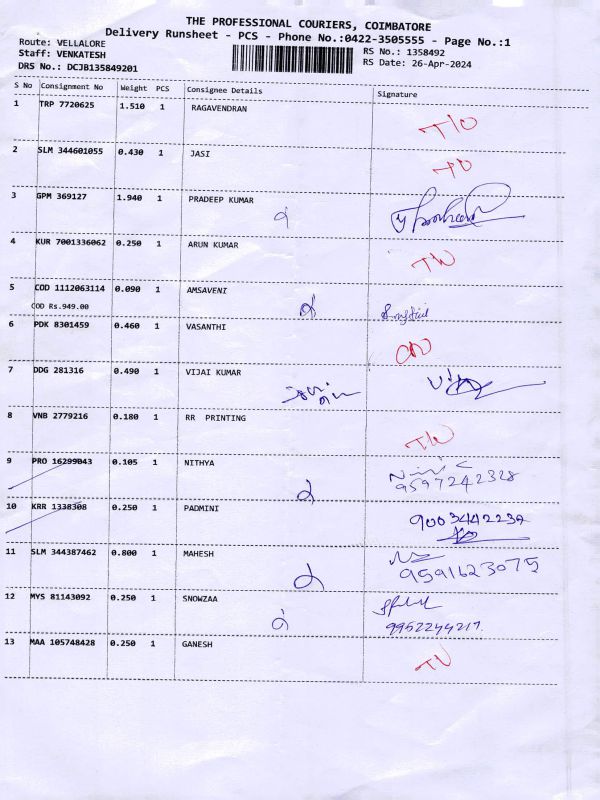 THE PROFESSIONAL COURIERS, COIMBATORE
Delivery Runsheet - PCS - Phone No.:0422-3505555 - Page No.:1
Route: VELLALORE
Staff: VENKATESH
DRS No.: DCJB135849201
RS No.: 1358492
RS Date: 26-Apr-2024
S No Consignment No Weight PCS Consignee Details Signature
1 TRP 7720625 1.510 1 RAGAVENDRAN
2 SLM 344601055 0.430 1 JASI
3 GPM 369127 1.940 1 PRADEEP KUMAR
4 KUR 7001336062 0.250 1 ARUN KUMAR
5 COD 1112063114 0.090 1 AMSAVENI
COD Rs.949.00
6 PDK 8301459 0.460 1 VASANTHI
7 DDG 281316 0.490 1 VIJAI KUMAR
8 VNB 2779216 0.180 1 RR PRINTING
9 PRO 16299043 0.105 1 NITHYA
9597242328
10 KRR 1338308 0.250 1 PADMINI
11 SLM 344387462 0.800 1 MAHESH
9591623075
12 MYS 81143092 0.250 1 SNOWZAA
13 MAA 105748428 0.250 1 GANESH